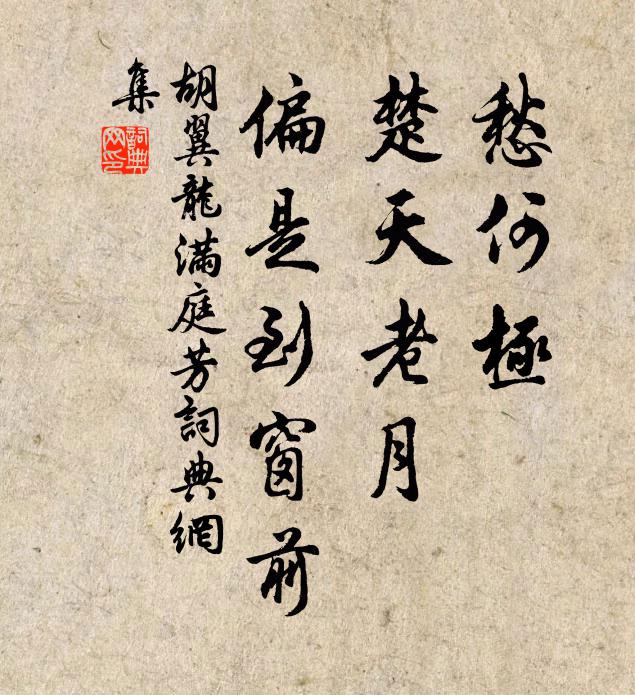 愁何極
楚天老月
偏是到窗前
胡翼龍滿庭芳詞典網
集
詞典
网印